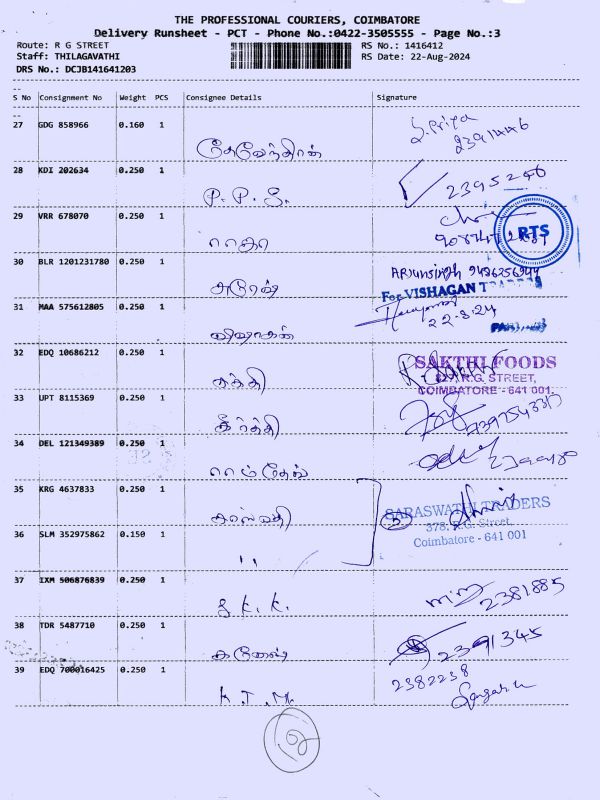 THE PROFESSIONAL COURIERS, COIMBATORE
Delivery Runsheet - PCT - Phone No.:0422-3505555 - Page No.:3
Route: R G STREET
RS No.: 1416412
Staff: THILAGAVATHI
RS Date: 22-Aug-2024
DRS No.: DCJB141641203
--
S No Consignment No Weight PCS Consignee Details Signature
--
27 GDG 858966 0.160 1
S. Priya
2391446
தேவேந்திரன்
28 KDI 202634 0.250 1
P. P. S.
2395246
29 VRR 678070 0.250 1
ராதா
RTS
30 BLR 1201231780 0.250 1
சுரேஷ்
Arjunsingh
For VISHAGAN
31 MAA 575612805 0.250 1
22-8-24
விஷாகன்
32 EDQ 10686212 0.250 1
சக்தி
SAKTHI FOODS
R.G. STREET,
COIMBATORE - 641 001.
33 UPT 8115369 0.250 1
கீர்த்தி
34 DEL 121349389 0.250 1
ராம்தேவ்
35 KRG 4637833 0.250 1
சரஸ்வதி
SARASWATHI TRADERS
378, R.G. Street,
Coimbatore - 641 001
36 SLM 352975862 0.150 1
,,
37 IXM 506876839 0.250 1
S. K. K.
2381885
38 TDR 5487710 0.250 1
கணேஷ்
2391345
39 EDQ 700016425 0.250 1
2382238
K. T. M.